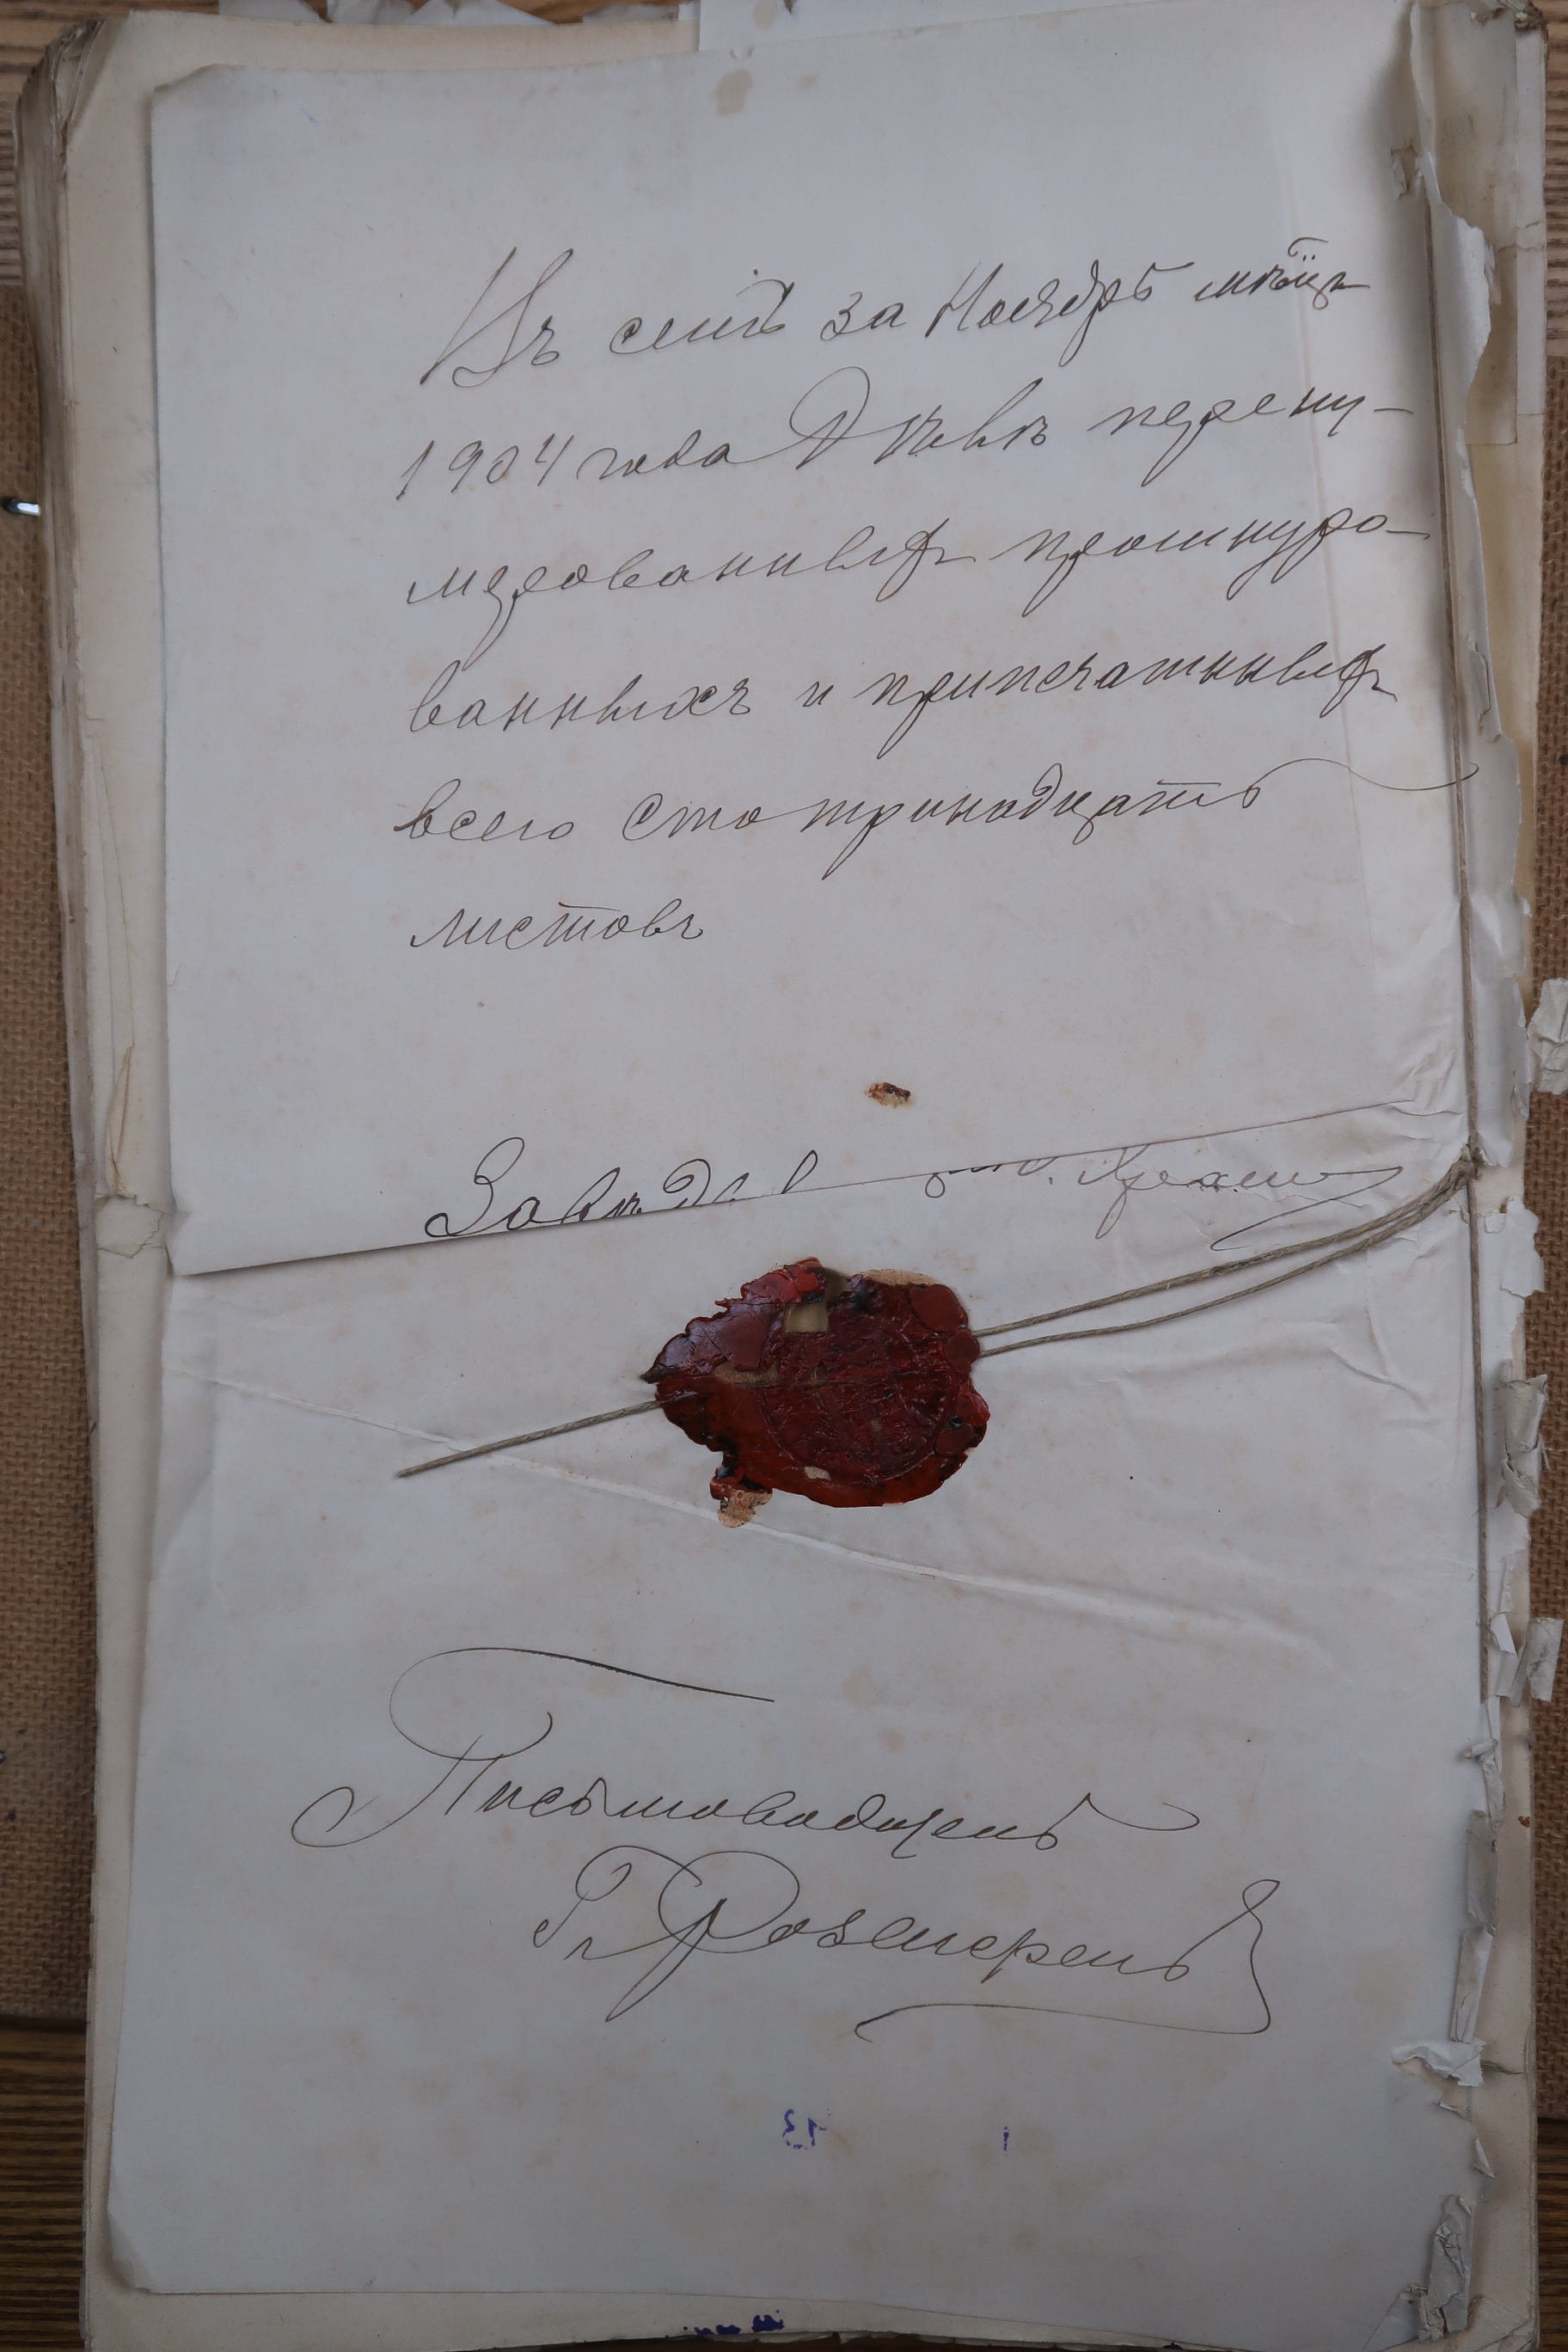 Въ семъ за Ноябрь мѣсяцъ
1904 года Дѣлѣ перену-
мерованныхъ прошнуро-
ванныхъ и припечатнныхъ
всего сто тринадцать
листовъ
Завѣдыв
Письмоводитель
13